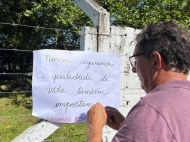 Nossa segurança
e qualidade de
vida também
importam